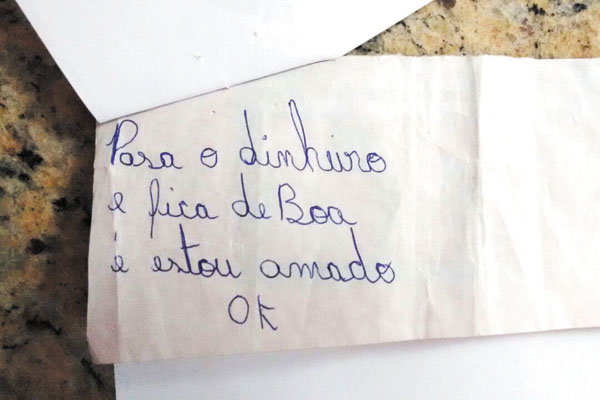 Pasa o dinhuro
e fica de Boa
e estou amado
OK